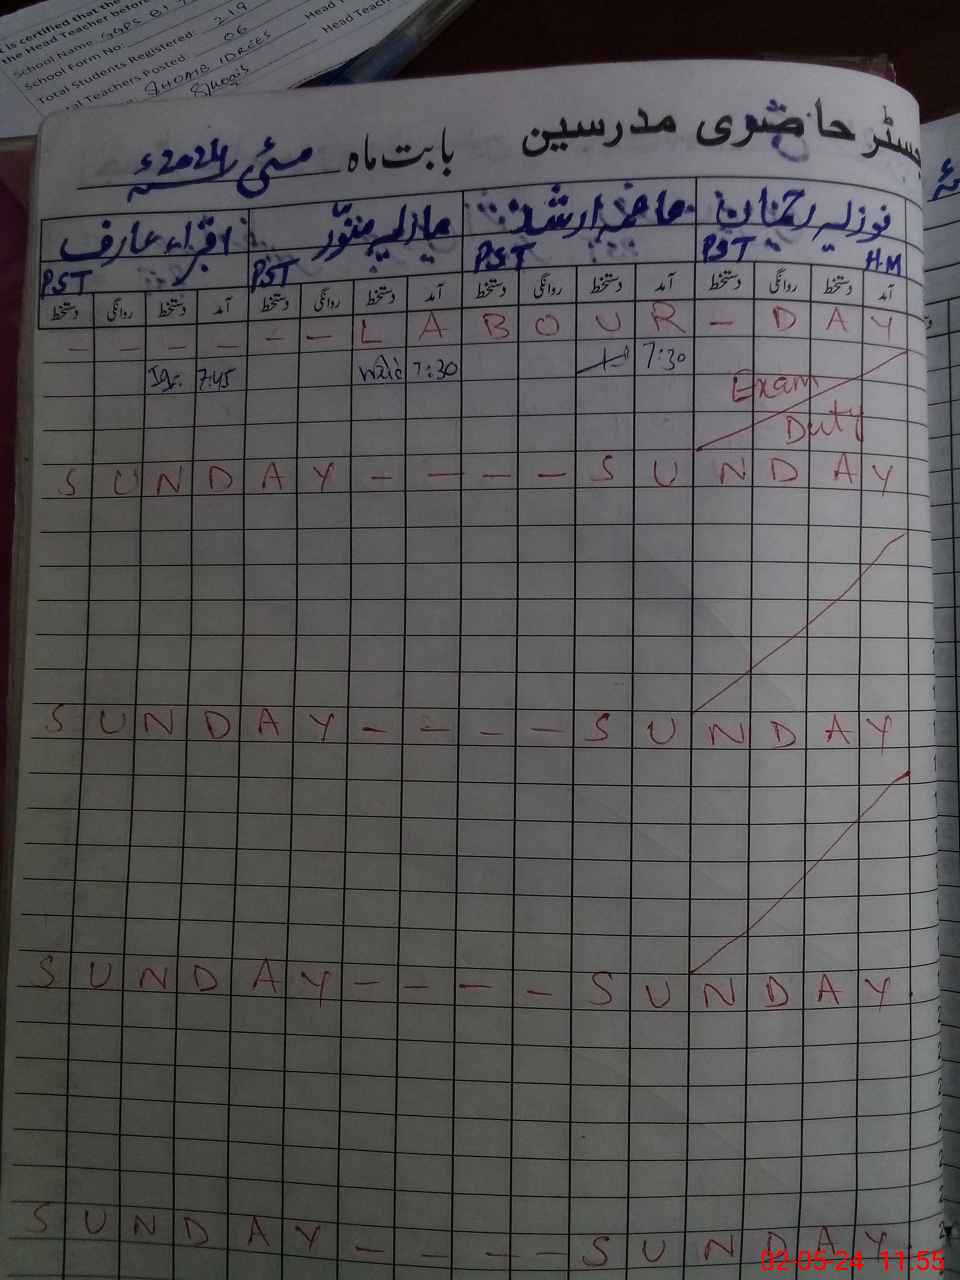 is certified that the
the Head Teacher before
School Name: GGPS
School Form No:
Total Students Registered: 219
Total Teachers Posted: 06
SHOAIB IDREES
Head Teac
جسٹر حاضری مدرسین بابت ماہ مئی 2024ء
فوزیہ رحمان
PST
H.M
PST
PST
اقراء عارف
PST
آمد دستخط روانگی دستخط آمد دستخط روانگی دستخط آمد دستخط روانگی دستخط آمد دستخط روانگی دستخط
- - - - - - L A B O U R - D A Y
Iqr. 7:45 7:30 7:30
Exam
Duty
S U N D A Y - - - - S U N D A Y
S U N D A Y - - - - S U N D A Y
S U N D A Y - - - - S U N D A Y
S U N D A Y - - - - S U N D A Y
02-05-24 11:55